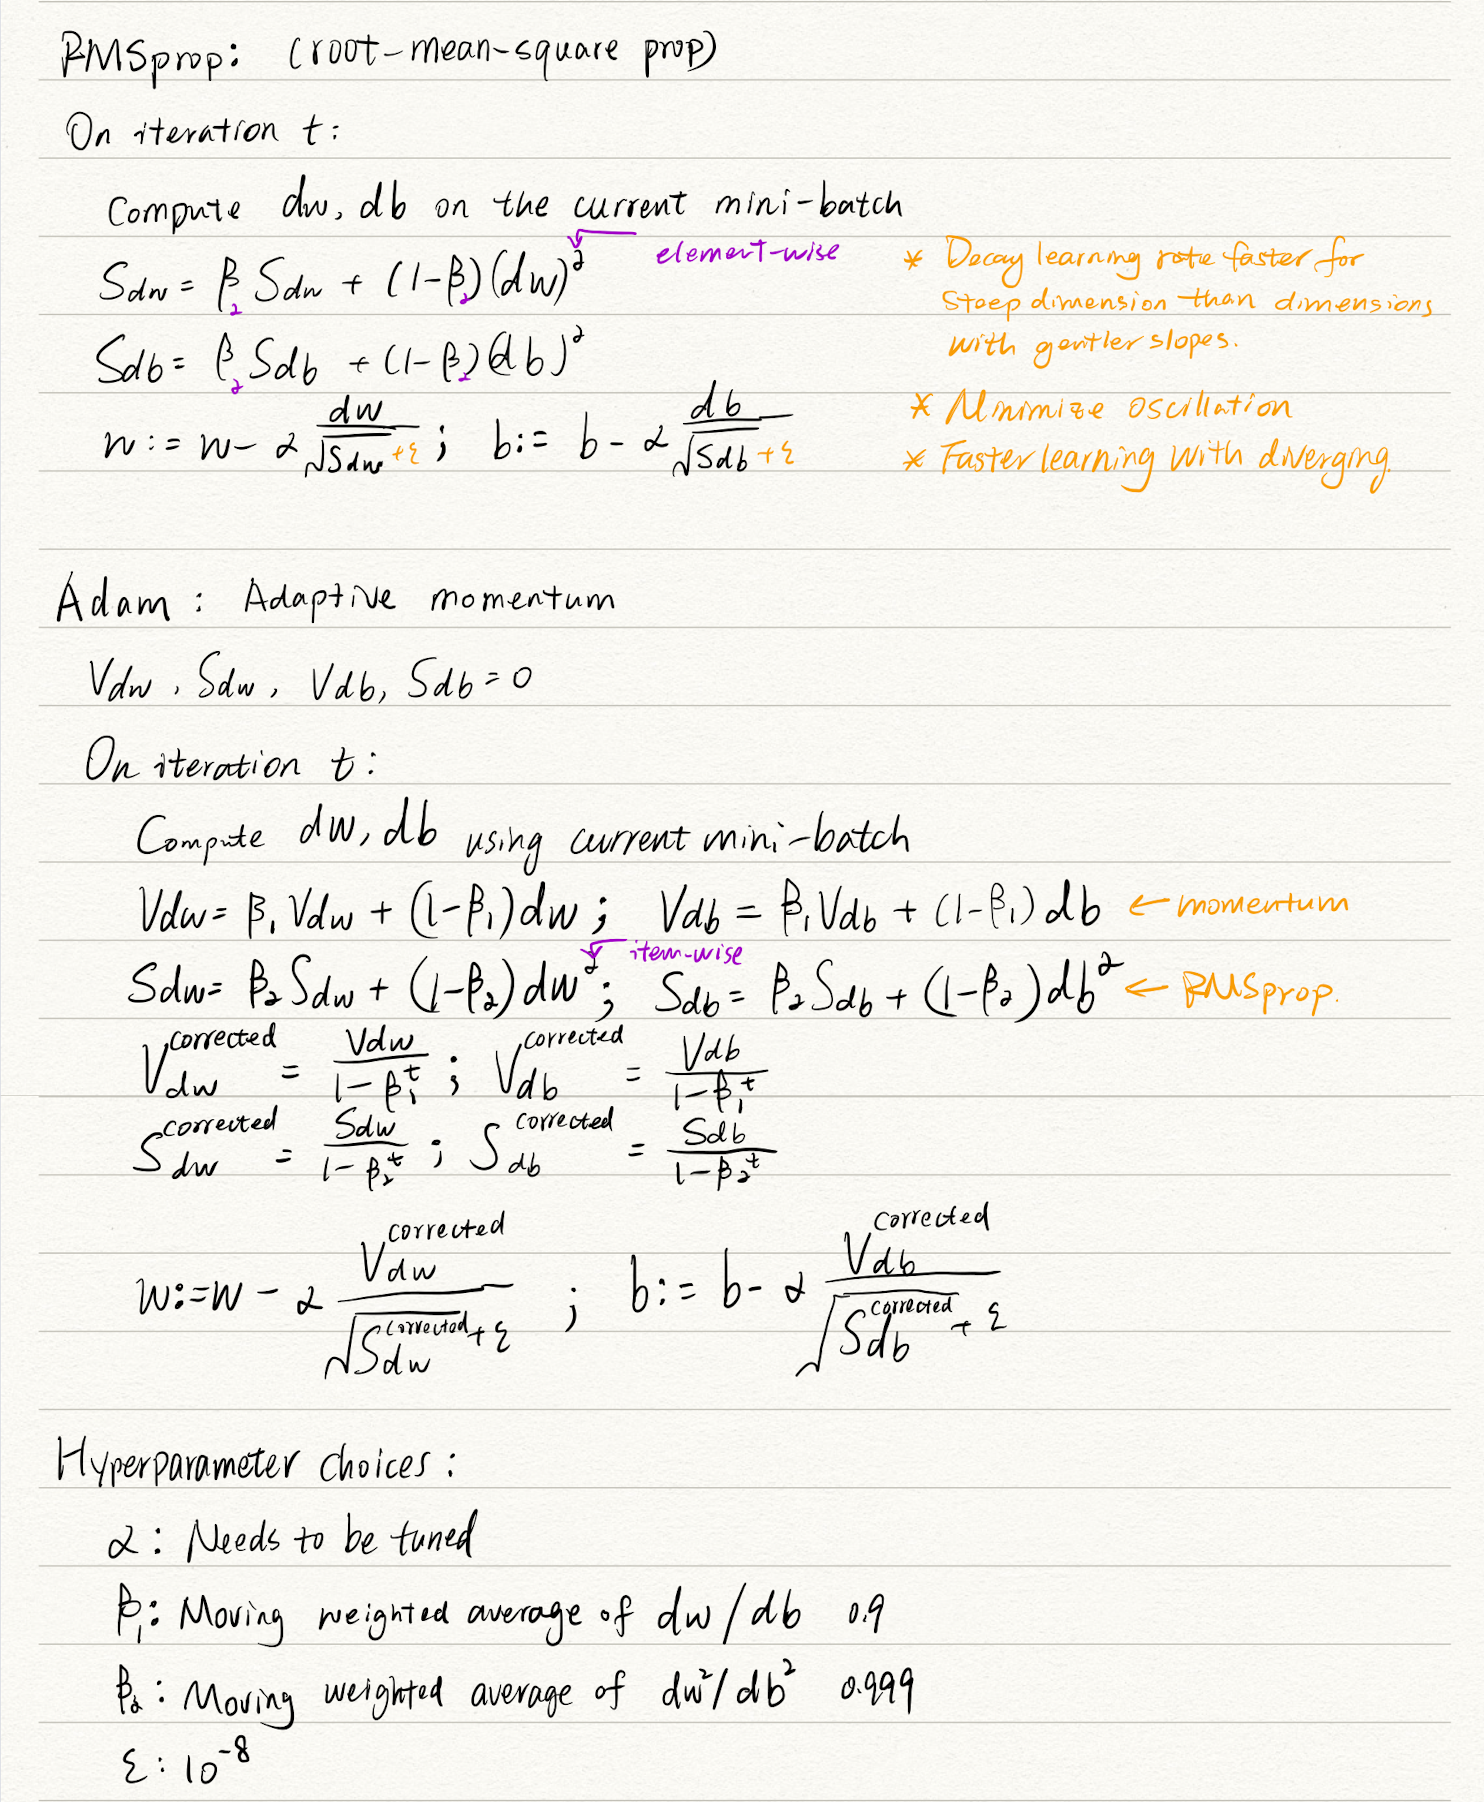 RMSprop: (root-mean-square prop)
On iteration t:
Compute dw, db on the current mini-batch
element-wise
Sdw = β₂ Sdw + (1-β₂)(dw)²
Sdb = β₂ Sdb + (1-β₂)(db)²
w := w - α dw/(√Sdw + ε) ; b := b - α db/(√Sdb + ε)
* Decay learning rate faster for
steep dimension than dimensions
with gentler slopes.
* Minimize oscillation
* Faster learning with diverging.
Adam : Adaptive momentum
Vdw, Sdw, Vdb, Sdb = 0
On iteration t:
Compute dw, db using current mini-batch
Vdw = β₁ Vdw + (1-β₁) dw ; Vdb = β₁ Vdb + (1-β₁) db ← momentum
item-wise
Sdw = β₂ Sdw + (1-β₂) dw² ; Sdb = β₂ Sdb + (1-β₂) db² ← RMSprop.
Vdw^corrected = Vdw/(1-β₁^t) ; Vdb^corrected = Vdb/(1-β₁^t)
Sdw^corrected = Sdw/(1-β₂^t) ; Sdb^corrected = Sdb/(1-β₂^t)
w := w - α Vdw^corrected/(√Sdw^corrected + ε) ; b := b - α Vdb^corrected/(√Sdb^corrected + ε)
Hyperparameter choices :
α : Needs to be tuned
β₁: Moving weighted average of dw/db 0.9
β₂ : Moving weighted average of dw²/db² 0.999
ε : 10⁻⁸